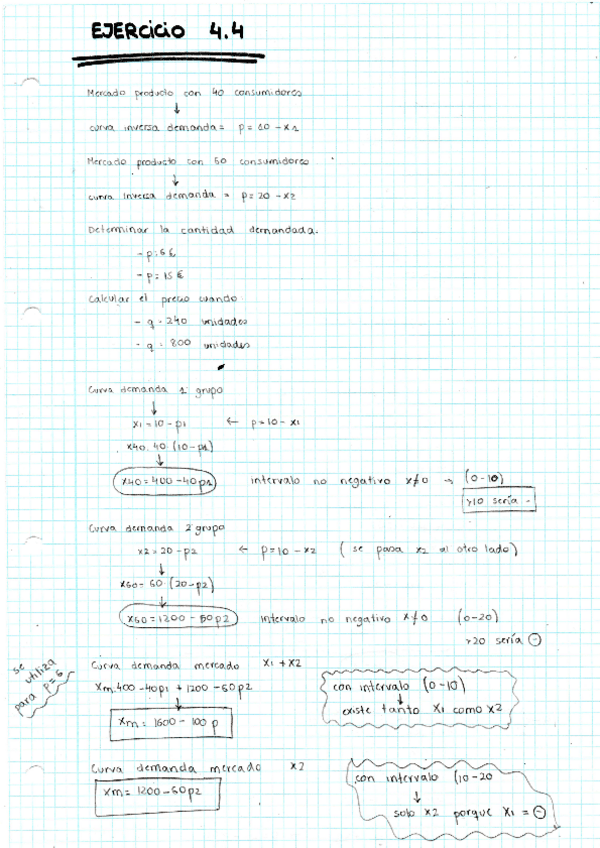 EJERCICIO 4.4
Mercado producto con 40 consumidores
↓
curva inversa demanda = p = 10 - x1
Mercado producto con 60 consumidores
↓
curva inversa demanda = p = 20 - x2
Determinar la cantidad demandada.
- p = 6 €
- p = 15 €
Calcular el precio cuando
- q = 240 unidades
- q = 800 unidades
Curva demanda 1º grupo
↓
x1 = 10 - p1 ← p = 10 - x1
x40 = 40 · (10 - p1)
↓
x40 = 400 - 40p1 intervalo no negativo x≠0 → (0-10)
>10 sería -
Curva demanda 2º grupo
x2 = 20 - p2 ← p = 10 - x2 (se pasa x2 al otro lado)
↓
x60 = 60 · (20 - p2)
↓
x60 = 1200 - 60p2 intervalo no negativo x≠0 (0-20)
>20 sería ⊖
se utiliza para p = 6
Curva demanda mercado x1 + x2
xm = 400 - 40p1 + 1200 - 60p2
↓
xm = 1600 - 100p
con intervalo (0-10)
↓
existe tanto x1 como x2
Curva demanda mercado x2
xm = 1200 - 60p2
con intervalo (10-20
↓
solo x2 porque x1 = ⊖